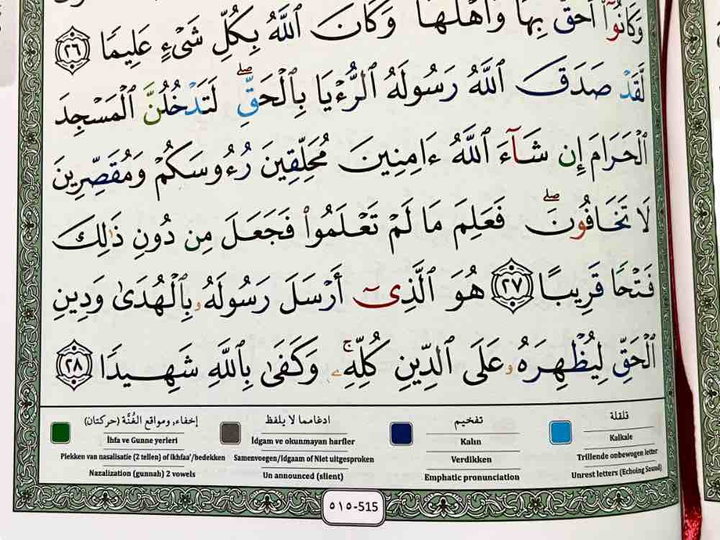 وَكَانُوٓا۟ أَحَقَّ بِهَا وَأَهْلَهَا ۚ وَكَانَ ٱللَّهُ بِكُلِّ شَىْءٍ عَلِيمًا ٢٦
لَّقَدْ صَدَقَ ٱللَّهُ رَسُولَهُ ٱلرُّءْيَا بِٱلْحَقِّ ۖ لَتَدْخُلُنَّ ٱلْمَسْجِدَ
ٱلْحَرَامَ إِن شَآءَ ٱللَّهُ ءَامِنِينَ مُحَلِّقِينَ رُءُوسَكُمْ وَمُقَصِّرِينَ
لَا تَخَافُونَ ۖ فَعَلِمَ مَا لَمْ تَعْلَمُوا۟ فَجَعَلَ مِن دُونِ ذَٰلِكَ
فَتْحًا قَرِيبًا ٢٧ هُوَ ٱلَّذِىٓ أَرْسَلَ رَسُولَهُۥ بِٱلْهُدَىٰ وَدِينِ
ٱلْحَقِّ لِيُظْهِرَهُۥ عَلَى ٱلدِّينِ كُلِّهِۦ ۚ وَكَفَىٰ بِٱللَّهِ شَهِيدًا ٢٨
قلقلة تفخيم ادغامما لا يلفظ إخفاء، ومواقع الغُنَّة (حركتان)
İhfa ve Gunne yerleri İdgam ve okunmayan harfler Kalın Kalkale
Plekken van nasalisatie (2 tellen) of ikhfaa'/bedekken Samenvoegen/Idgaam of Niet uitgesproken Verdikken Trillende onbewogen letter
Nazalization (gunnah) 2 vowels Un announced (slient) Emphatic pronunciation Unrest letters (Echoing Sound)
٥١٥-515